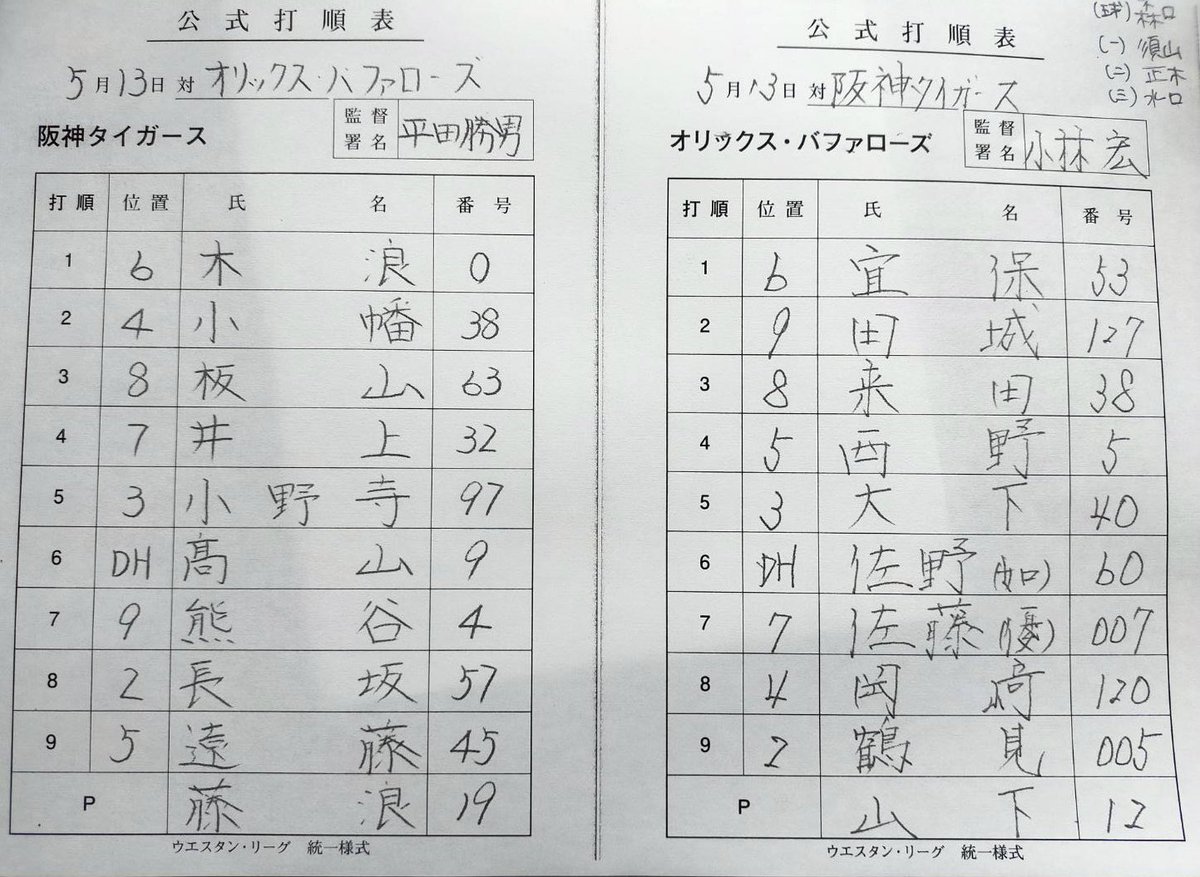 公式打順表
5月13日 対 オリックス・バファローズ
阪神タイガース
監督署名 平田勝男
打順 位置 氏名 番号
1 6 木浪 0
2 4 小幡 38
3 8 板山 63
4 7 井上 32
5 3 小野寺 97
6 DH 髙山 9
7 9 熊谷 4
8 2 長坂 57
9 5 遠藤 45
P 藤浪 19
ウエスタン・リーグ 統一様式
(球) 森口
(一) 須山
(二) 正木
(三) 水口
公式打順表
5月13日 対 阪神タイガース
オリックス・バファローズ
監督署名 小林宏
打順 位置 氏名 番号
1 6 宜保 53
2 9 田城 127
3 8 来田 38
4 5 西野 5
5 3 大下 40
6 DH 佐野(如) 60
7 7 佐藤(優) 007
8 4 岡﨑 120
9 2 鶴見 005
P 山下 12
ウエスタン・リーグ 統一様式